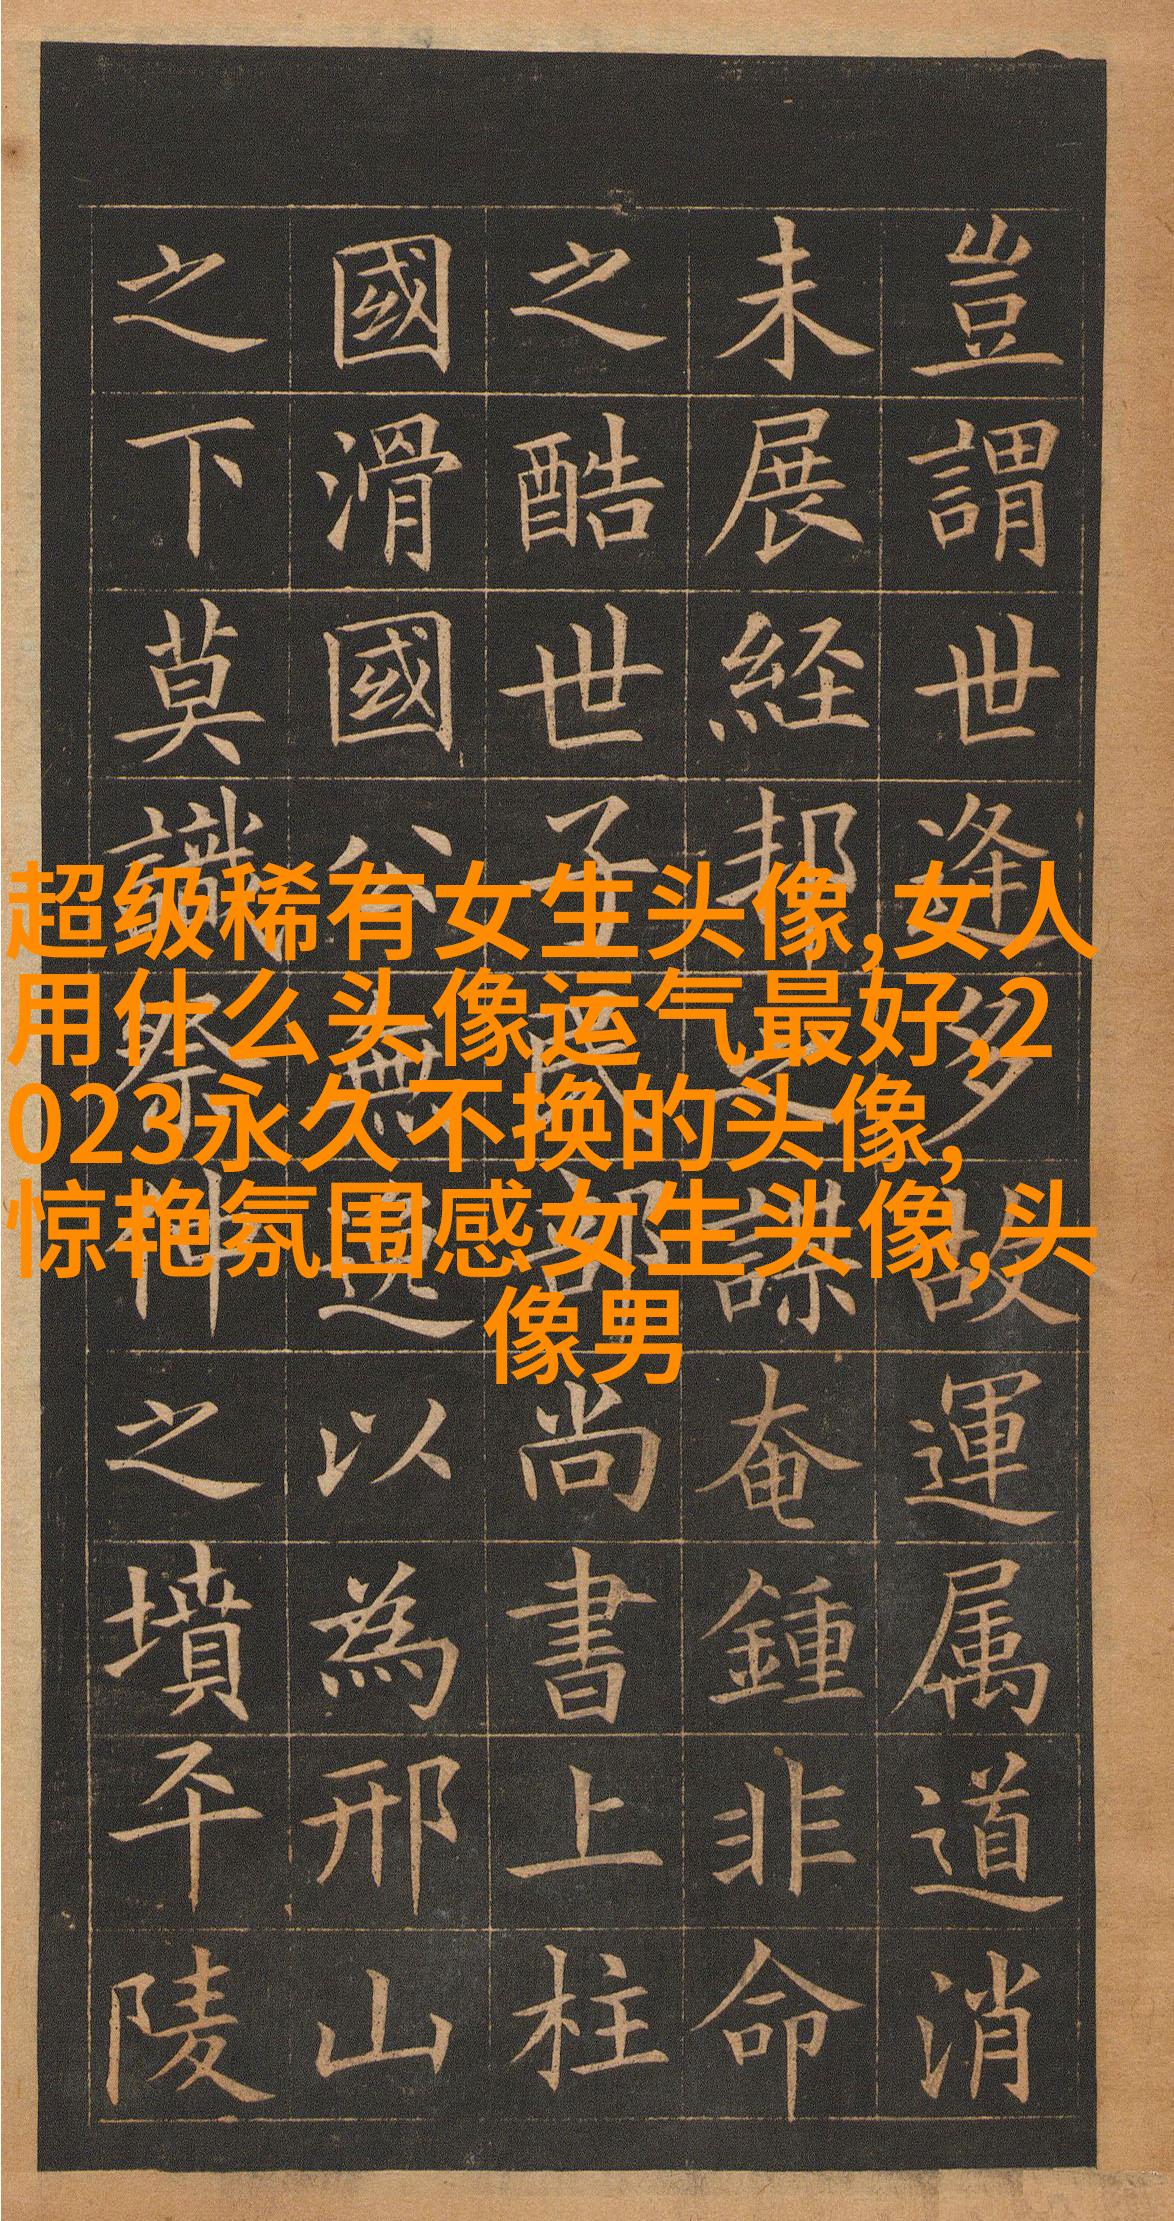 豈謂世逢多故運属道消
未展経邦之謀奄鍾非命
之酷世子民部尚書上柱
國滑國公無逸以為邢山
之下莫識祭仲之墳平陵
超级稀有女生头像,女人
用什么头像运气最好,2
023永久不换的头像,
惊艳氛围感女生头像,头
像男